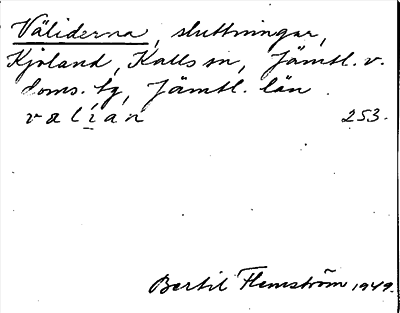 Väliderna, sluttningar,
Kjoland, Kalls sn, Jämtl. v.
doms. tg, Jämtl. län.
valían 253.
Bertil Flemström 1949.